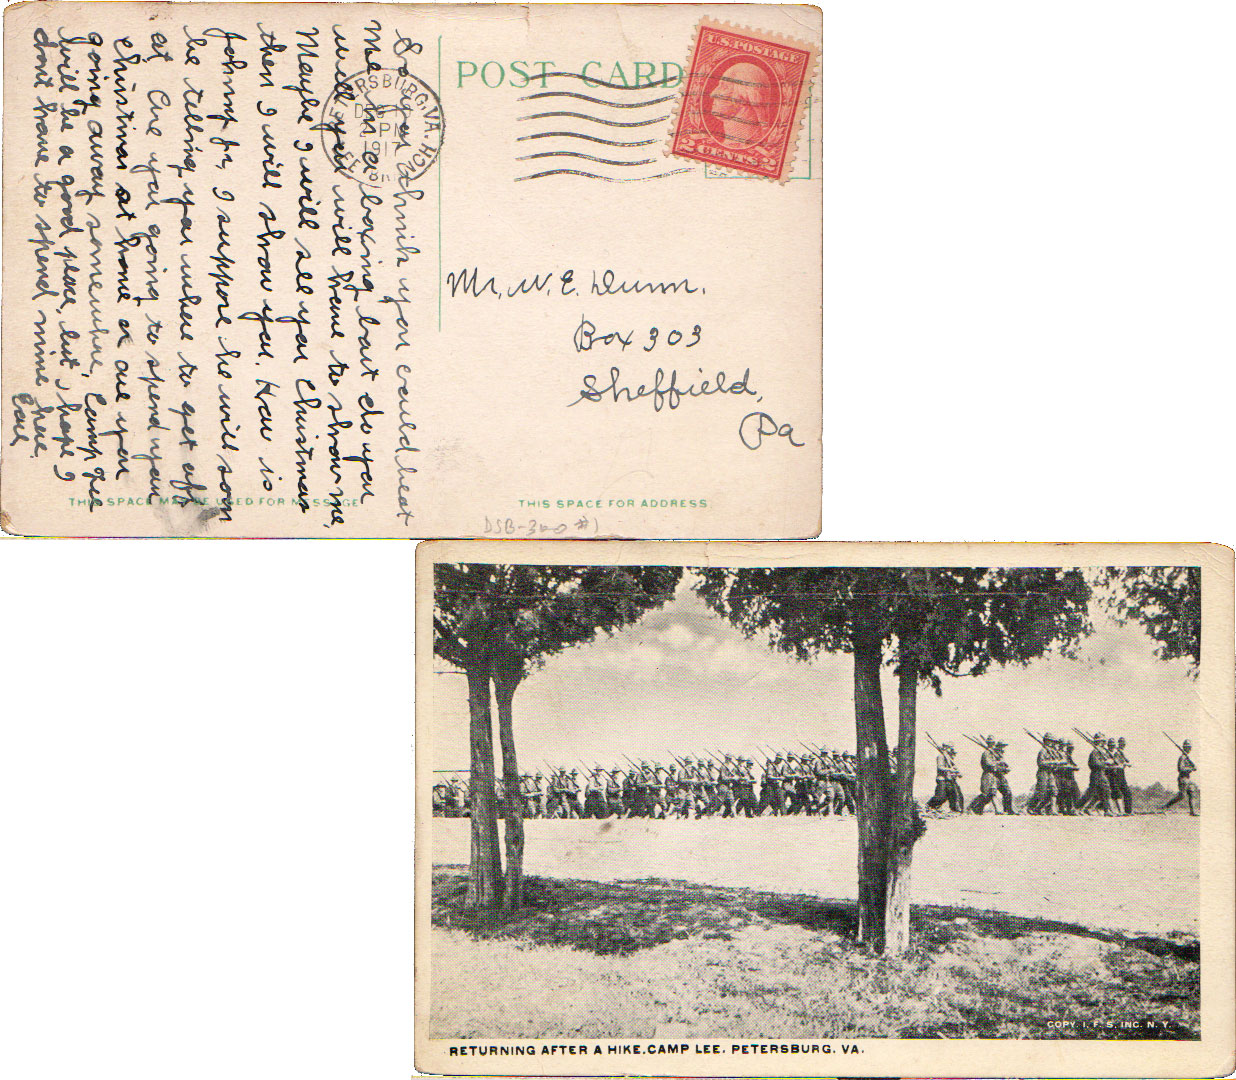 POST CARD
U.S. POSTAGE
2 CENTS 2
PETERSBURG, VA.
DEC
2 PM
1917
LEE BRANCH
So you think you could beat
Me in a boxing bout do you
well you will have to show me,
Maybe I will see you Christmas
then I will show you. How is
Johnny Jr, I suppose he will soon
be telling you where to get off
at. Are you going to spend your
Christmas at home or are you
going away somewhere, Camp Lee
will be a good place, but I hope I
dont have to spend mine here.
Earl
Mr. W. E. Dunn.
Box 303
Sheffield,
Pa
THIS SPACE MAY BE USED FOR MESSAGE
THIS SPACE FOR ADDRESS
DSB-300 #1
COPY. I. F. S. INC. N. Y.
RETURNING AFTER A HIKE, CAMP LEE, PETERSBURG, VA.